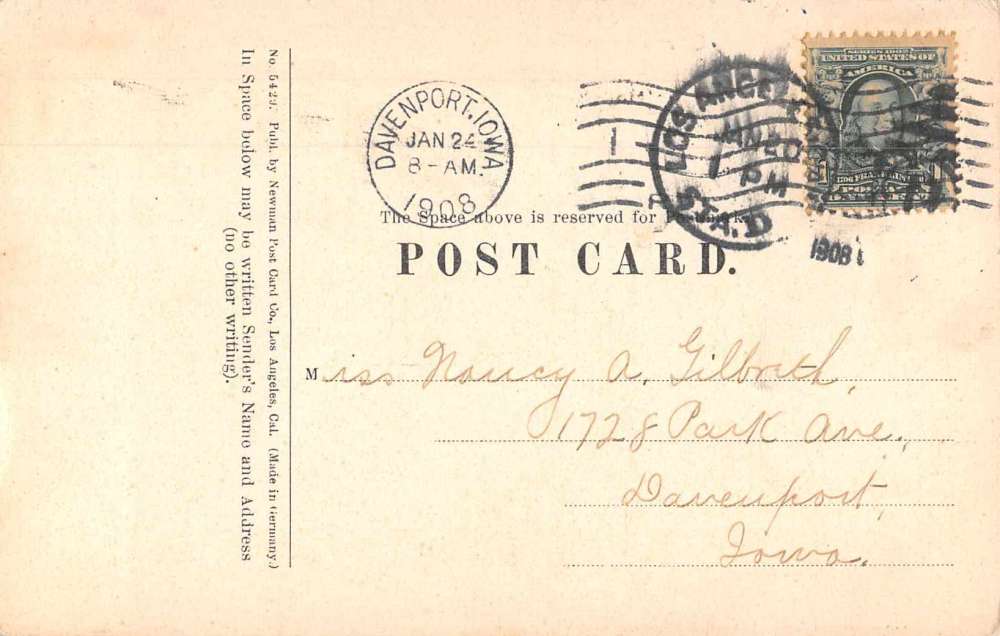 DAVENPORT, IOWA
JAN 24
8-AM.
1908
1
LOS ANGELES
JAN 20
1 PM
STA. D
1908
SERIES 1902
UNITED STATES OF
AMERICA
1706 FRANKLIN
The Space above is reserved for Postmark.
POST CARD.
Miss Nancy A. Gilbreth,
1728 Park Ave.,
Davenport,
Iowa.
No. 5429. Publ. by Newman Post Card Co., Los Angeles, Cal. (Made in Germany.)
In Space below may be written Sender's Name and Address
(no other writing).